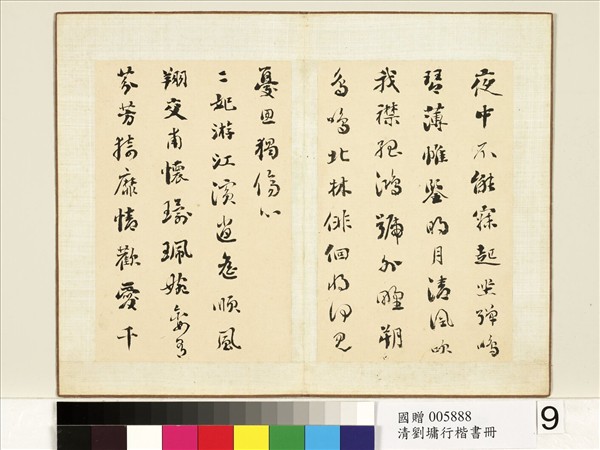 夜中不能寐起坐彈鳴
琴薄惟鑒明月清風吹
我襟孤鴻號外野朔
鳥鳴北林徘徊將何見
憂思獨傷心
二妃游江濱逍遙順風
翔交甫懷環珮婉孌有
芬芳猗靡情歡愛千
國贈 005888
清劉墉行楷書冊
9